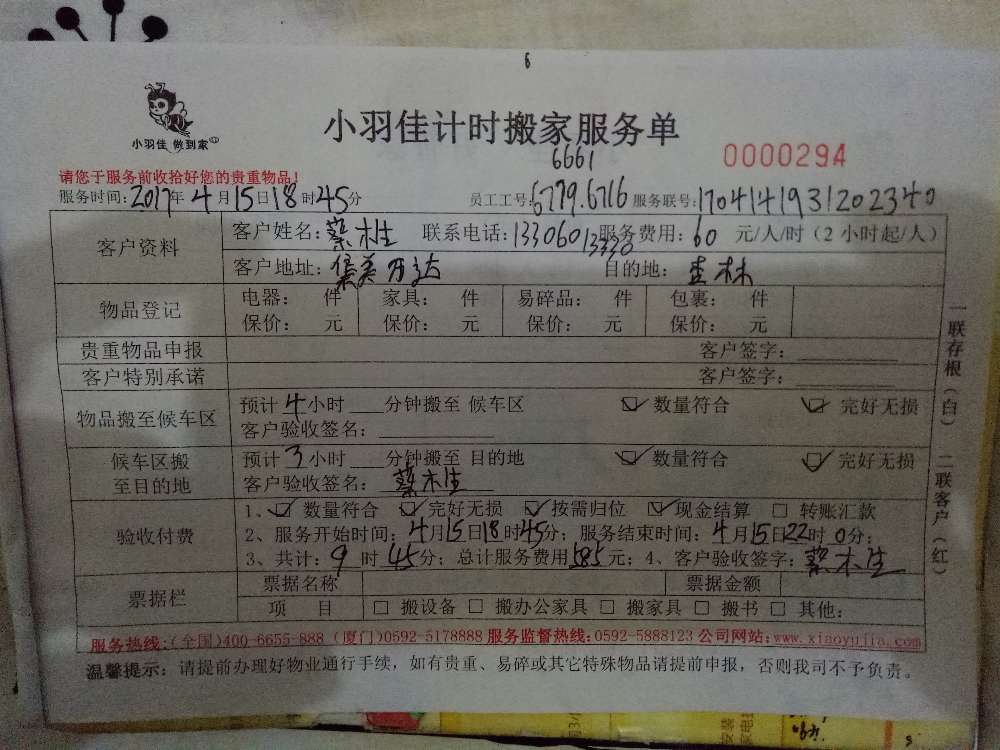 6
小羽佳 做到家
小羽佳计时搬家服务单
6661
0000294
请您于服务前收拾好您的贵重物品!
服务时间:2017年4月15日18时45分 员工工号:6779.6716 服务联号:1704141931202340
客户资料 客户姓名:蔡木生 联系电话:13306013330 服务费用:60 元/人/时(2小时起/人)
客户地址:集美万达 目的地:杏林
物品登记 电器: 件 家具: 件 易碎品: 件 包裹: 件
保价: 元 保价: 元 保价: 元 保价: 元
贵重物品申报 客户签字:
客户特别承诺 客户签字:
物品搬至候车区 预计4小时___分钟搬至 候车区 ☑ 数量符合 ☑ 完好无损
客户验收签名:
候车区搬至目的地 预计3小时___分钟搬至 目的地 ☑ 数量符合 ☑ 完好无损
客户验收签名:蔡木生
验收付费 1、☑ 数量符合 ☑ 完好无损 ☑ 按需归位 ☑ 现金结算 □ 转账汇款
2、服务开始时间:4月15日18时45分;服务结束时间:4月15日22时0分;
3、共计:9时45分;总计服务费用585元;4、客户验收签字:蔡木生
票据栏 票据名称 票据金额
项 目 □ 搬设备 □ 搬办公家具 □ 搬家具 □ 搬书 □ 其他:
服务热线:(全国)400-6655-888 (厦门)0592-5178888 服务监督热线:0592-5888123 公司网站:www.xiaoyujia.com
温馨提示:请提前办理好物业通行手续,如有贵重、易碎或其它特殊物品请提前申报,否则我司不予负责。
一联存根(白) 二联客户(红)